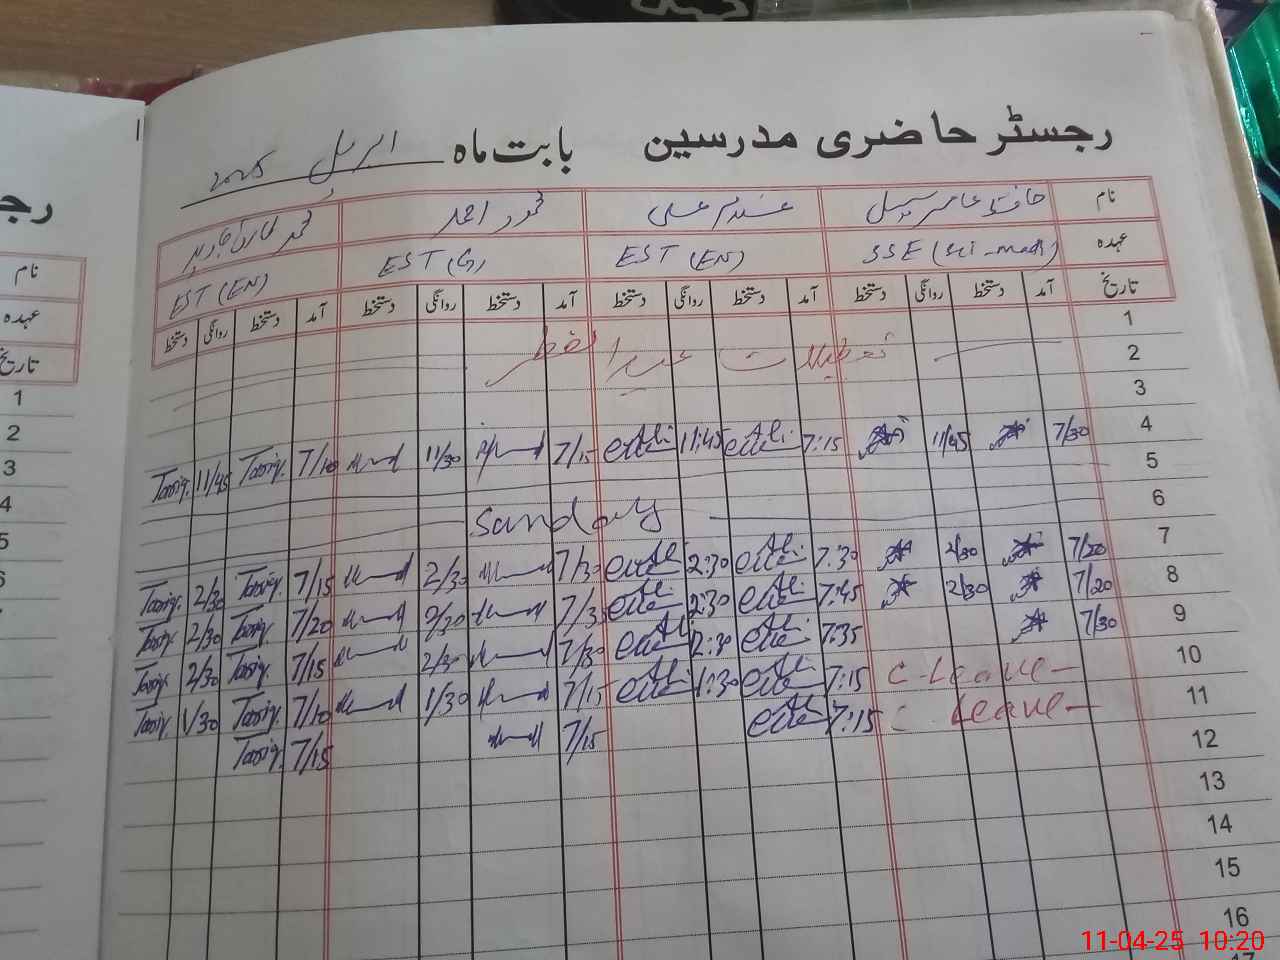 رجسٹر حاضری مدرسین بابت ماہ اپریل 2025
نام حافظ عامر سہیل غلام علی محمود احمد محمد طارق جاوید
عہدہ SSE (Sci-Math) EST (EN) EST (G) EST (EN)
تاریخ آمد دستخط روانگی دستخط آمد دستخط روانگی دستخط آمد دستخط روانگی دستخط آمد دستخط روانگی دستخط
1
2 تعطیلات عید الفطر
3
4 7/30 11/45 7:15 11:45 7/15 11/30 7/10 Tariq. 11/45 Tariq.
5
6 Sunday
7 7/20 2/30 7:30 2:30 7/30 2/30 7/15 Tariq. 2/30 Tariq.
8 7/20 2/30 7:45 2:30 7/35 2/20 7/20 Tariq. 2/30 Tariq.
9 7/30 7:35 2:30 7/30 2/30 7/15 Tariq. 2/30 Tariq.
10 C-Leave- 7:15 1:30 7/15 1/30 7/10 Tariq. 1/30 Tariq.
11 C. Leave- 7:15 7/15 7/15 Tariq.
12
13
14
15
16
17
رجـ
نام
عہدہ
تاریخ
1
2
3
4
5
6
11-04-25 10:20